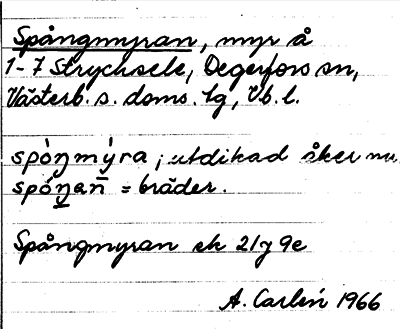 Spångmyran, myr å
1-7 Strycksele, Degerfors sn,
Västerb. s. doms. lg, Vb. l.
spóŋmýra; utdikad åker nu
spóŋan̄ = bräder.
Spångmyran ek 21 J 9e
A. Carlén 1966